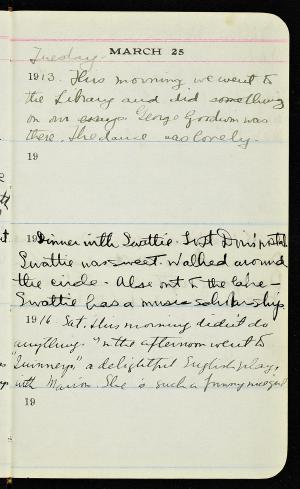 MARCH 25
Tuesday.
1913. This morning we went to
the Library and did something
on our essays. George Goodwin was
there. The dance was lovely.
19
19 Dinner with Swattie. Lost Doris'
Swattie was sweet. Walked around
the circle. Also out to the lake -
Swattie has a music scholarship.
1916 Sat. This morning didn't do
anything. In the afternoon went to
"Quinneys" a delightful English play,
with Marion. She is such a funny nice girl
19